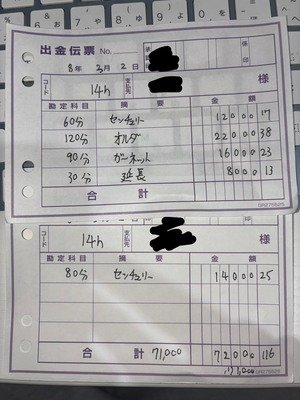 出金伝票 No.
承認印
係印
8年 3月 2日
コード 14h 支払先 様
勘定科目 摘要 金額
60分 センチュリー 12000 17
120分 オルダ 22000 38
90分 ガーネット 16000 23
30分 延長 8000 13
合計
GR275525
コード 14h 支払先 様
勘定科目 摘要 金額
80分 センチュリー 14000 25
合計 71,000 72000 116
GR275525